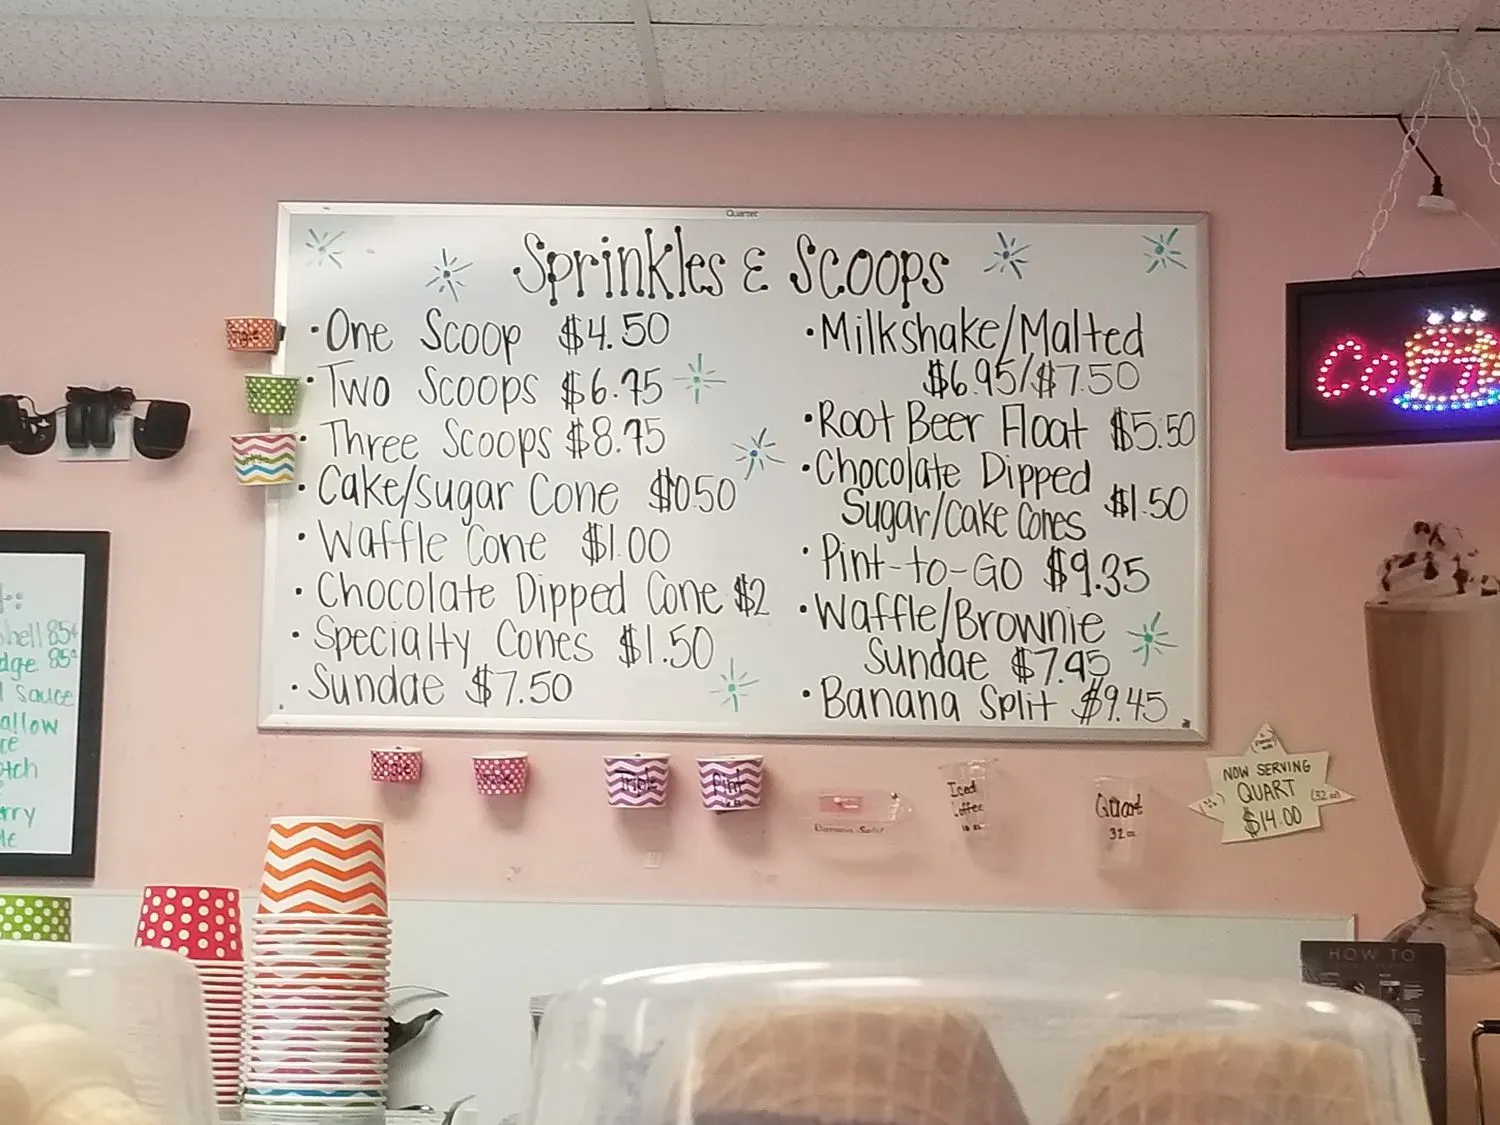 Quartet
Sprinkles & Scoops
• One Scoop $4.50
• Two Scoops $6.75
• Three Scoops $8.75
• Cake/sugar Cone $0.50
• Waffle Cone $1.00
• Chocolate Dipped Cone $2
• Specialty Cones $1.50
• Sundae $7.50
• Milkshake/Malted
$6.95/$7.50
• Root Beer Float $5.50
• Chocolate Dipped
Sugar/Cake Cones $1.50
• Pint-to-Go $9.35
• Waffle/Brownie
Sundae $7.95
• Banana Split $9.45
hell 85¢
dge 85¢
l sauce
allow
ce
otch
erry
le
Triple
Pint
Banana Split
Iced
Coffee
Quart
32 oz
NOW SERVING
QUART (32 oz)
$14.00
Co
HOW TO